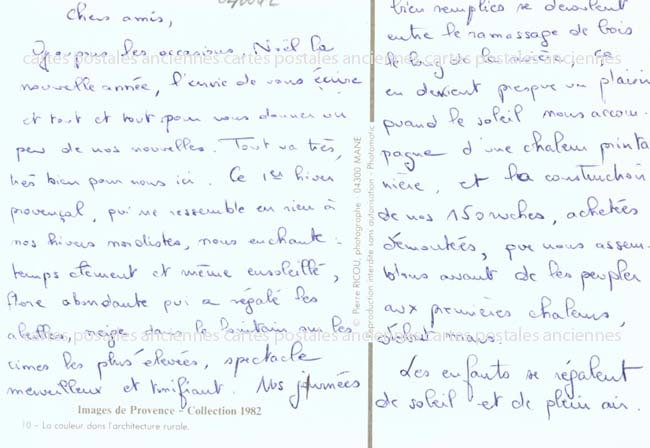 Chers amis,
Groupons les occasions, Noël la
nouvelle année, l'envie de vous écrire
et tout et tout pour vous donner un
peu de nos nouvelles. Tout va très,
très bien pour nous ici. Ce 1er hiver
provençal, qui ne ressemble en rien à
nos hivers nordistes, nous enchante :
temps clément et même ensoleillé,
flore abondante qui a régalé les
abeilles, neige dans le lointain sur les
cimes les plus élevées, spectacle
merveilleux et tonifiant. Nos journées
Images de Provence - Collection 1982
10 - La couleur dans l'architecture rurale.
© Pierre RICOU, photographe - 04300 MANE
Reproduction interdite sans autorisation - Photomatic
bien remplies se déroulent
entre le ramassage de bois
le long de la rivière, ce
en devient presque un plaisir
quand le soleil nous accom-
pagne d'une chaleur printa
nière, et la construction
de nos 150 ruches, achetées
démontées, que nous assem-
blons avant de les peupler
aux premières chaleurs,
début mars.
Les enfants se régalent
de soleil et de plein air.
cartes postales anciennes cartes postales anciennes cartes postales anciennes
cartes postales anciennes cartes postales anciennes cartes postales anciennes